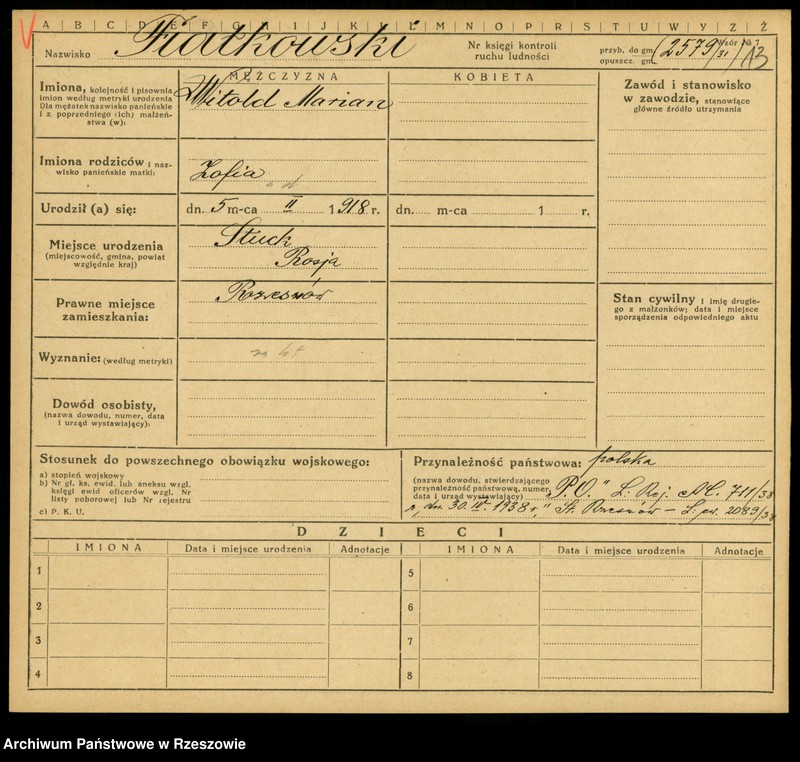 A B C D E F G H I J K L Ł M N O P R S T U W Y Z Ż
Nazwisko Fiałkowski
Nr księgi kontroli
ruchu ludności
przyb. do gm.
opuszcz. gm.
2579/31
Wzór № 7
13
MĘŻCZYZNA
KOBIETA
Imiona, kolejność i pisownia
imion według metryki urodzenia
Dla mężatek nazwisko panieńskie
i z poprzedniego (ich) małżeń-
stwa (w):
Witold Marian
Zawód i stanowisko
w zawodzie, stanowiące
główne źródło utrzymania
Imiona rodziców i naz-
wisko panieńskie matki:
Zofia
Urodził (a) się:
dn. 5 m-ca II 1918 r.
dn. m-ca 1 r.
Miejsce urodzenia
(miejscowość, gmina, powiat
względnie kraj)
Słuck
Rosja
Prawne miejsce
zamieszkania:
Rzeszów
Stan cywilny i imię drugie-
go z małżonków; data i miejsce
sporządzenia odpowiedniego aktu
Wyznanie: (według metryki)
Dowód osobisty,
(nazwa dowodu, numer, data
i urząd wystawiający):
Stosunek do powszechnego obowiązku wojskowego:
a) stopień wojskowy
b) Nr gł. ks. ewid. lub aneksu wzgl.
księgi ewid oficerów wzgl. Nr
listy poborowej lub Nr rejestru
c) P. K. U.
Przynależność państwowa: polska
(nazwa dowodu, stwierdzającego
przynależność państwową, numer,
data i urząd wystawiający)
P.O. " L: Rej. AC. 711/38
r, dn. 30.IV. 1938 r, " St. Rzeszów – L: ew. 2089/38
DZIECI
IMIONA
Data i miejsce urodzenia
Adnotacje
IMIONA
Data i miejsce urodzenia
Adnotacje
1
5
2
6
3
7
4
8
Archiwum Państwowe w Rzeszowie